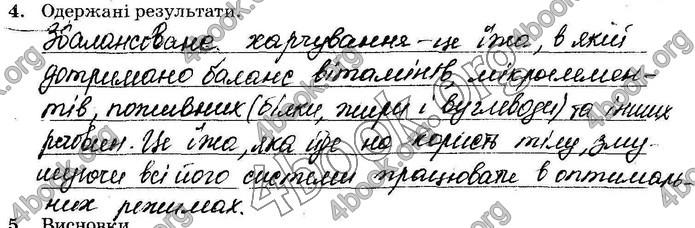 4. Одержані результати.
Збалансоване харчування – це їжа, в якій
дотримано баланс вітамінів, мікроелемен-
тів, поживних (білки, жири і вуглеводи) та інших
речовин. Це їжа, яка іде на користь тілу, зму-
шуючи всі його системи працювати в оптималь-
них режимах.
5. Висновки.
4book.org